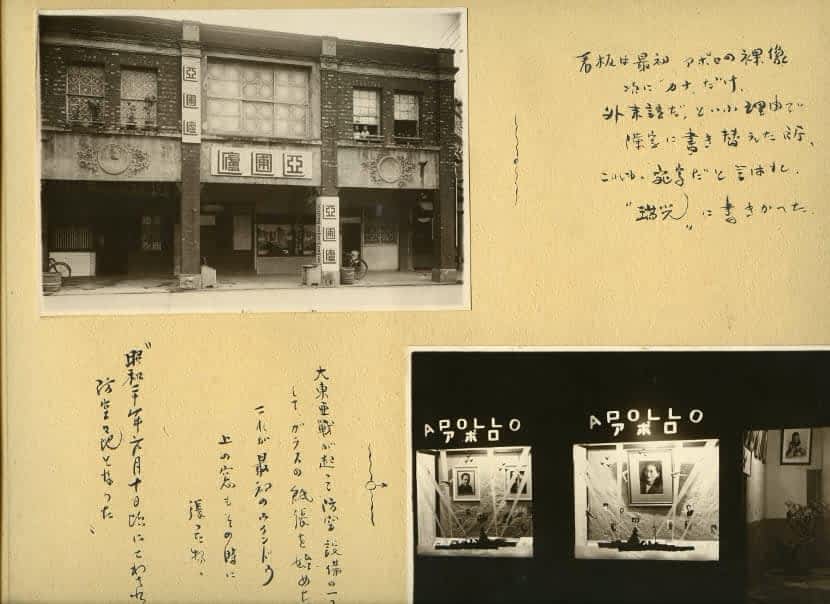 亞
圃
廬
廬圃亞
亞
圃
廬
看板は最初 アポロの裸像
次に カナ だけ、
外来語だ、といふ理由で
に書き替えた所、
これも、 だと言はれ、
に書きかった
大東亜戦が起って防空設備の一つと
してガラスの紙張を始めた
これが最初のウインドウ
上の窓もその時に
張った物。
昭和二十年六月十日頃にこわされ
防空々地となった、
APOLLO
アポロ
APOLLO
アポロ